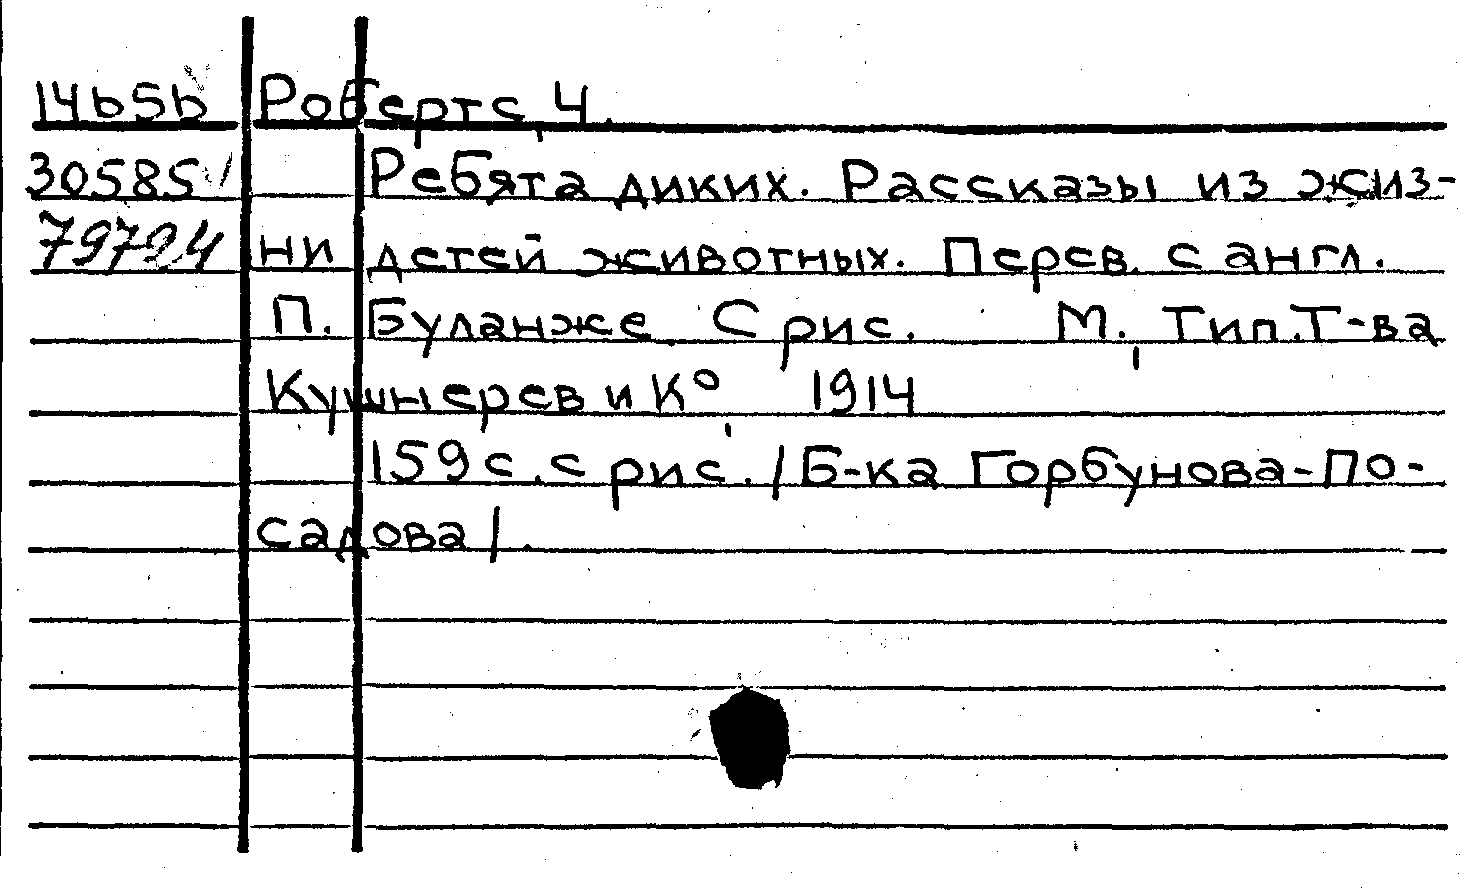 14656 Робертс, Ч.
30585 Ребята диких. Рассказы из жиз-
79724 ни детей животных. Перев. с англ.
П. Буланже. С рис. М., Тип. Т-ва
Кушнерев и К°, 1914
159 с. с рис. /Б-ка Горбунова-По-
садова/.